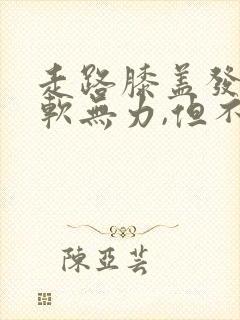 走路膝盖發
軟無力,但不
陳亞芸